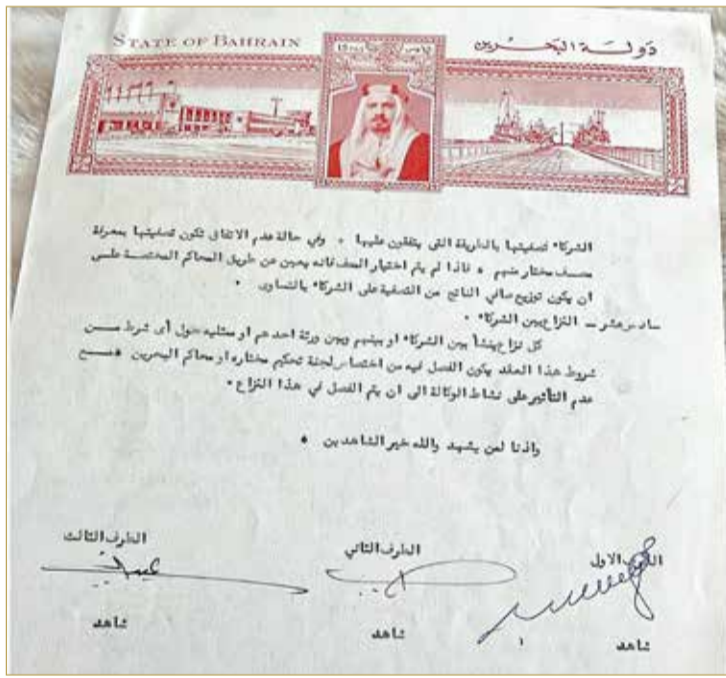 STATE OF BAHRAIN
دولة البحرين
الشركاء تصفيتها بالطريقة التي يتفقون عليها ٠ وفي حالة عدم الاتفاق تكون تصفيتها بمعرفة
مصف مختار منهم ٠ فاذا لم يتم اختيار المصف فانه يعين عن طريق المحاكم المختصة على
ان يكون توزيع صافي الناتج من التصفية على الشركاء بالتساوى ٠
سادس عشر – النزاع بين الشركاء ٠
كل نزاع ينشأ بين الشركاء او بينهم وبين ورثة احدهم او ممثليه حول أى شرط من
شروط هذا العقد يكون الفصل فيه من اختصاص لجنة تحكيم مختاره او محاكم البحرين مع
عدم التأثير على نشاط الوكالة الى ان يتم الفصل في هذا النزاع ٠
واذنا لمن يشهد والله خير الشاهدين ٠
الطرف الاول
الطرف الثاني
الطرف الثالث
شاهد
شاهد
شاهد